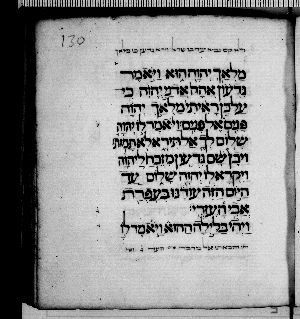 130
מלאך יהוה הוא ויאמר
גדעון אהה אדני יהוה כי
על כן ראיתי מלאך יהוה
פנים אל פנים ויאמר לו יהוה
שלום לך אל תירא לא תמות
ויבן שם גדעון מזבח ליהוה
ויקרא לו יהוה שלום עד
היום הזה עודנו בעפרת
אבי העזרי
ויהי בלילה ההוא ויאמר לו